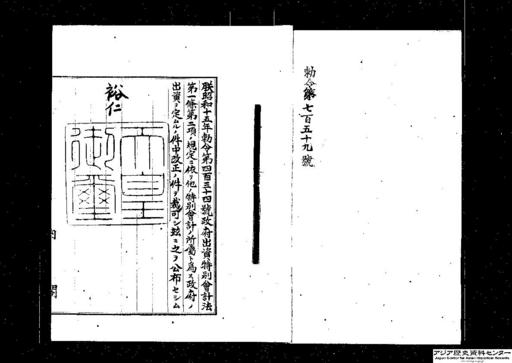 勅令第七百五十九號
朕昭和十五年勅令第四百三十四號政府出資特別會計法
第一條第二項ノ規定ニ依リ他ノ特別會計ノ所屬ト爲ス政府ノ
出資ヲ定ムルノ件中改正ノ件ヲ裁可シ玆ニ之ヲ公布セシム
裕仁
天皇
御璽
内
閣
アジア歴史資料センター
Japan Center for Asian Historical Records